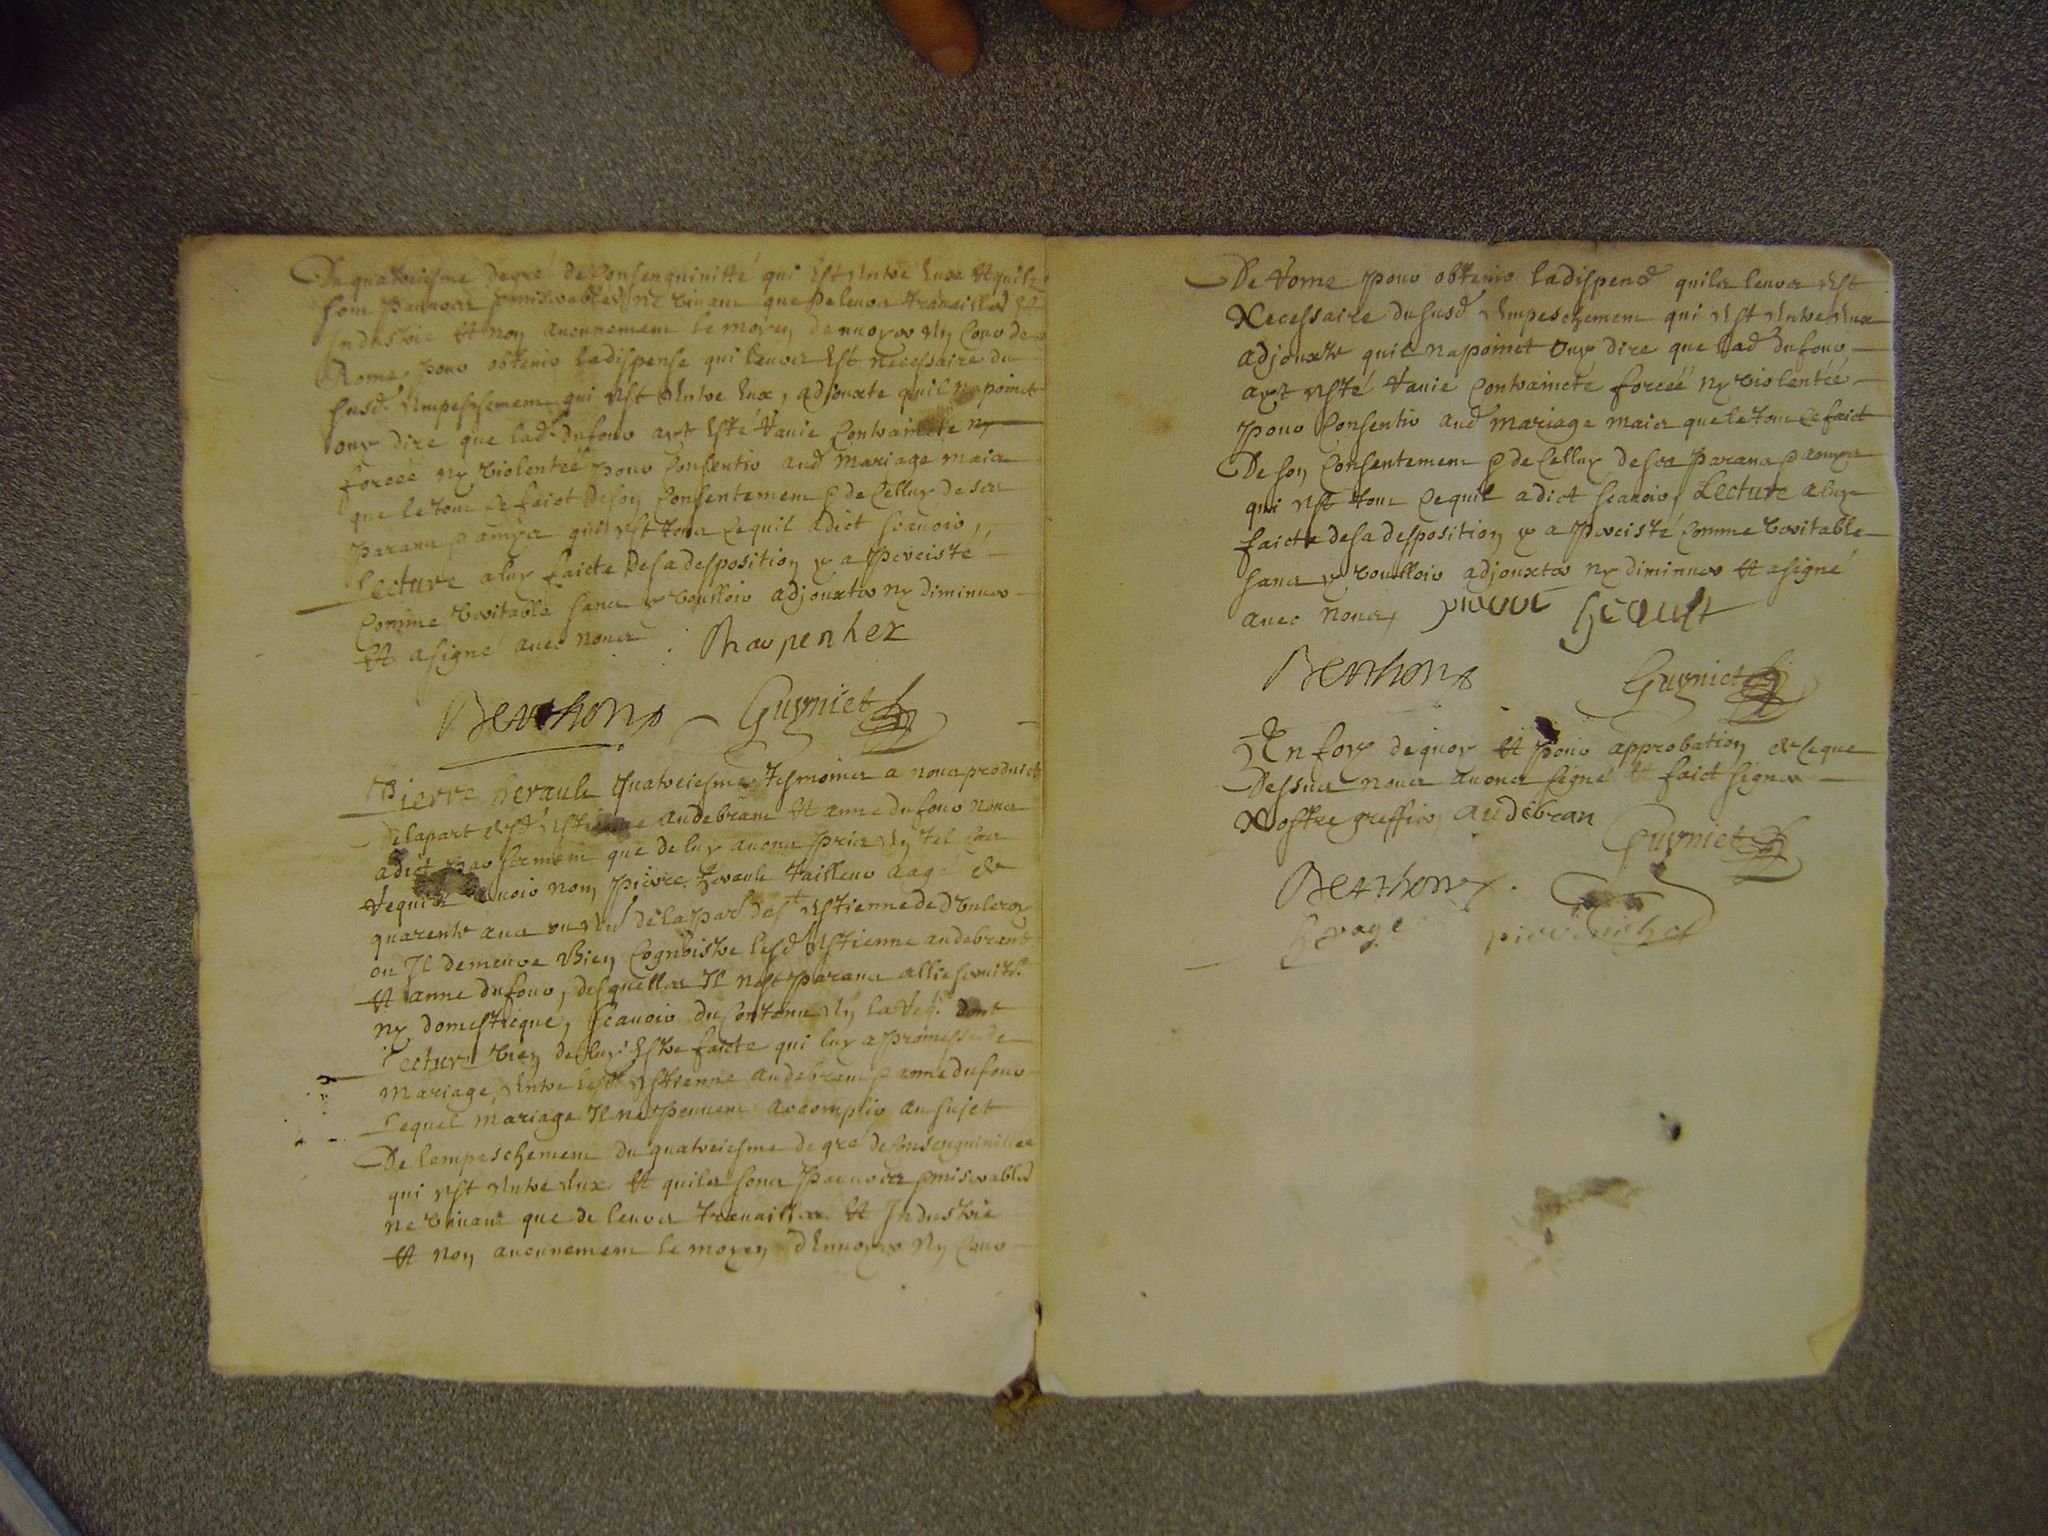 Du quatreiesme degré de Consenquinitté qui Est Entre Eux Et quilz
sont pauvres & miserables ne vivant que de leurs travailles Et
Industrie Et non aucunnement le moyen denvoyer En Cour de
Rome pour obtenir la dispense qui leurs Est necessaire du
susd. Empeschement qui Est Entre Eux, adjouxte quil na poinct
ouy dire que lad. dufour ayt Esté Ravie Contraincte ny
forcéé ny violentéé pour Consentir aud mariage mais
que le tout ce faict de son Consentement & de Celluy de ses
parans & amys qui Est tout Ce quil a dict scavoir,
Lecture a luy faicte de sa desposition y a percisté
Comme veritable sans y voulloir adjouxter ny diminuer
Et a signé avec nous Charpentier
Berthon Guyniet
Pierre herault quatreiesme tesmoins a nous produict
de la part desd Estienne audebrant Et anne dufour nous
a dict par serment que de luy avons pris En tel Cas
Requis avoir nom pierre herault tailleur aagé de
quarente ans ou En de la par St Estienne de
ou Il demeure Bien Cognoistre lesd Estienne audebrant
Et anne dufour, desquelles Il nest parans allié
ny domesticque, scavoir du Contenu En la Req. dont
Lecture vien de luy Estre faicte qui luy a promesse de
mariage Entre lesd Estienne audebrant & anne dufour
Lequel mariage Il ne peuvent accomplir au sujet
De lempeschement du quatreiesme degré de Consenquinittée
qui Est Entre Eux Et quiles sont pauvres & miserables
ne vivant que de leurs travailles Et Industrie
Et non aucunnement le moyen dEnvoyer En Cour
De Rome pour obtenir la dispence quiles leurs Est
Necessaire du susd Empeschement qui Est Entre Eux
adjouxte quil na poinct ouy dire que lad dufour
ayt Esté Ravie Contraincte forcéé ny violentéé
pour Consentir aud mariage mais que le tout Ce faict
De son Consentement & de Celluy de ses parans & amys
qui Est tout Ce quil a dict scavoir, Lecture a luy
faicte de sa desposition y a perciste Comme veritable
sans y voulloir adjouxter ny diminuer Et a signé
avec nous, pierre herault
Berthon Guyniet
En foy de quoy Et pour approbation de Ce que
Dessus nous avons signé Et faict signer
Nostre greffier, audebran Guyniet
Berthon